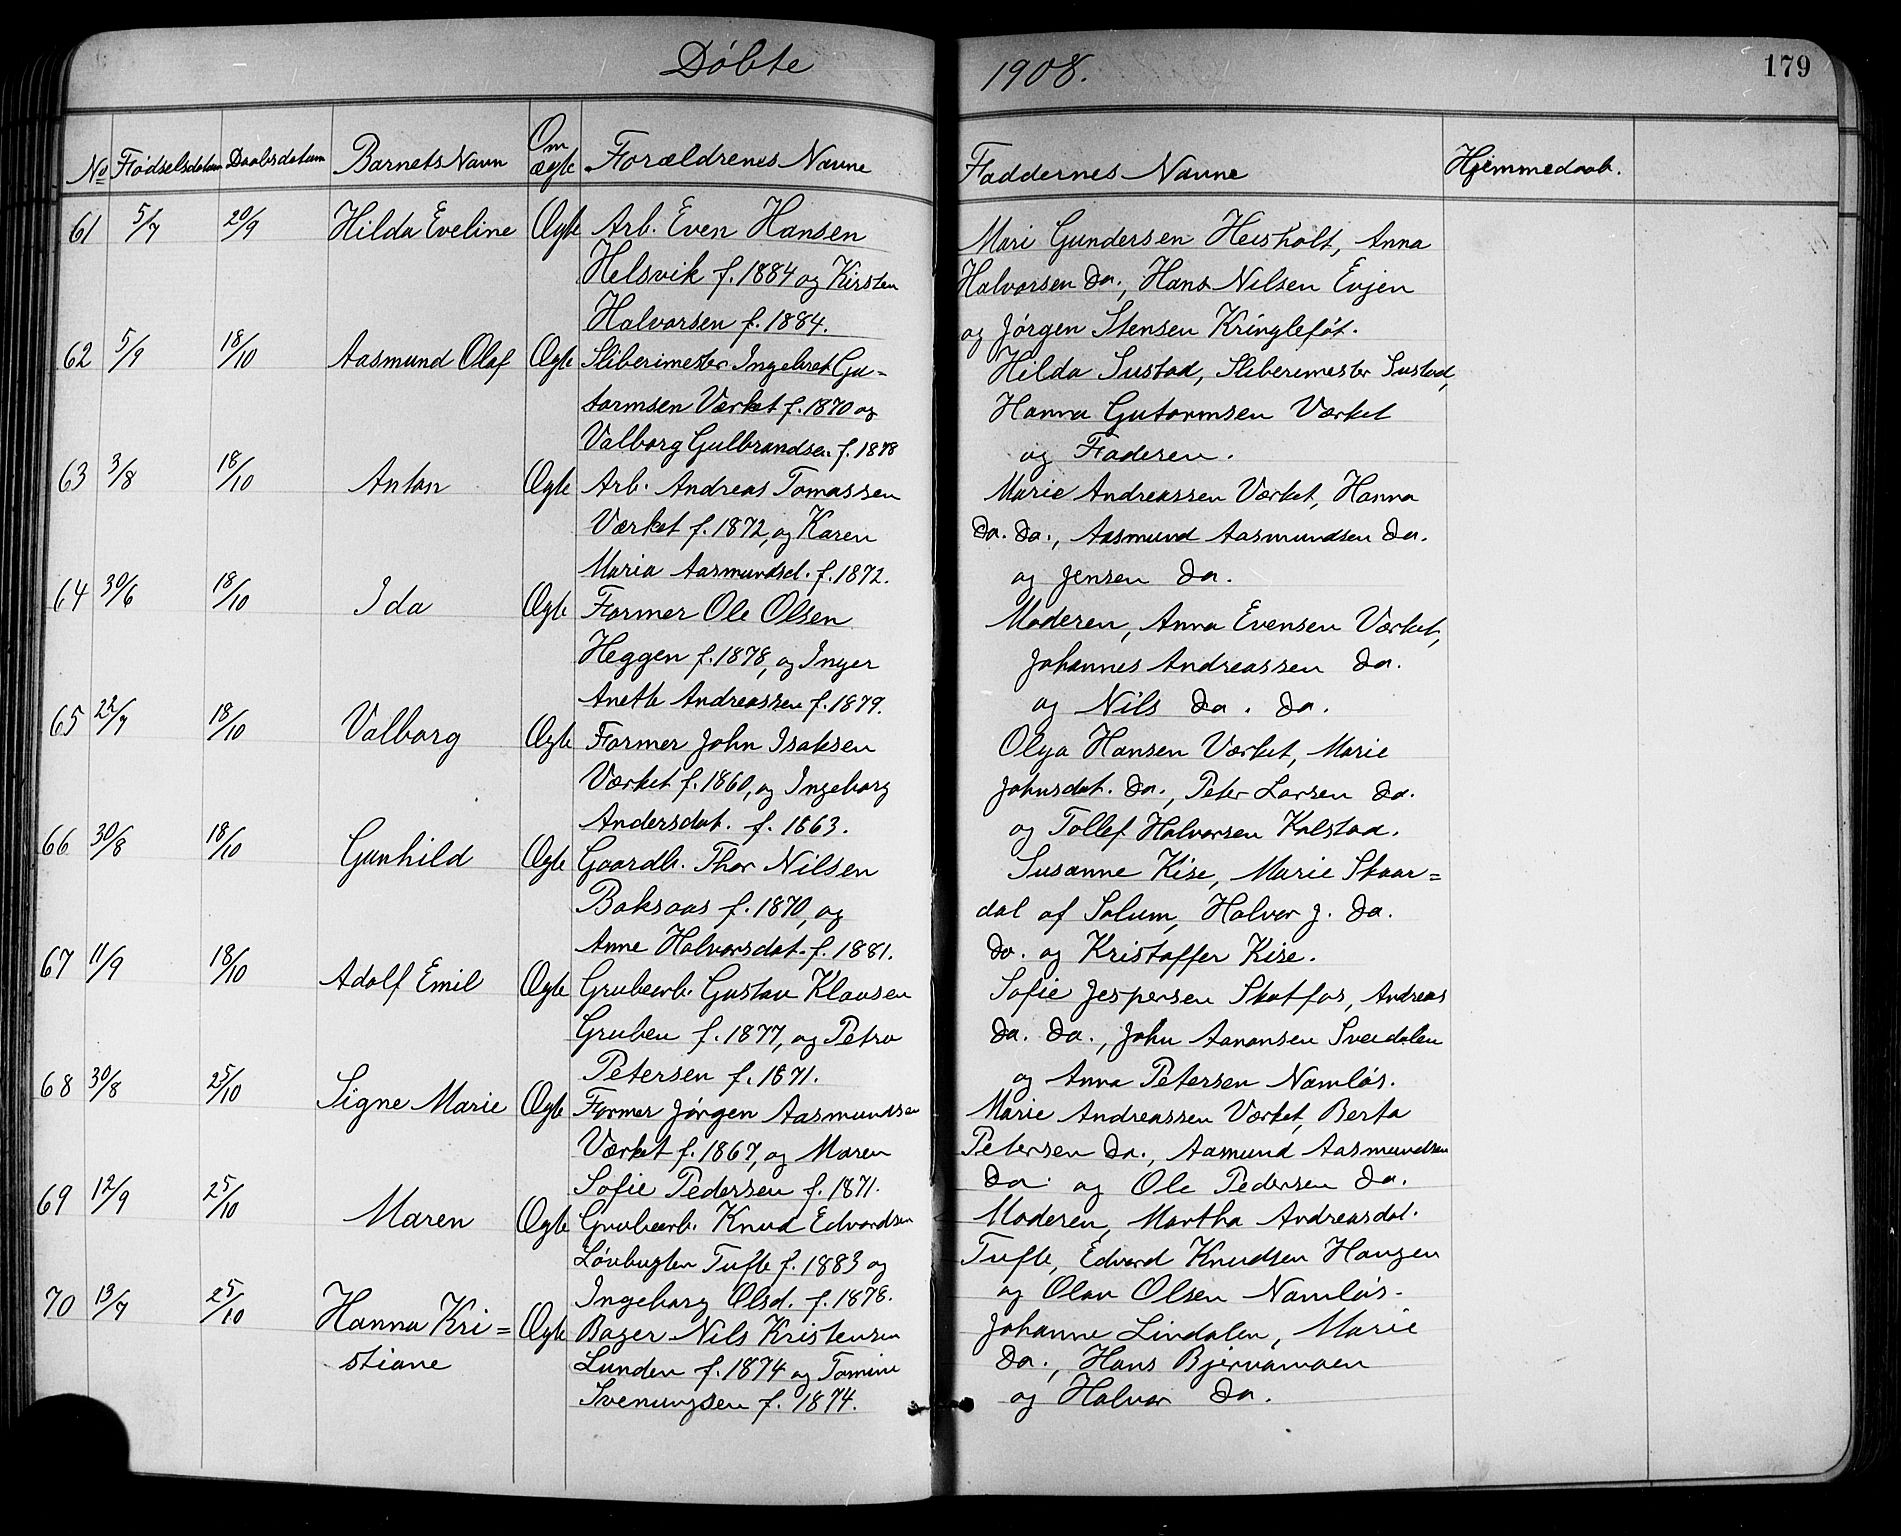 Døbte 1908. 179
No Fødselsdatum Daabsdatum Barnets Navn Om ægte Forældrenes Navne Faddernes Navne Hjemmedaab.
61 5/7 20/9 Hilda Eveline Ægte Arb. Even Hansen
Helsvik f. 1884 og Kirsten
Halvorsen f. 1884.
Mari Gundersen Heisholt, Anna
Halvorsen do., Hans Nilsen Evjen
og Jørgen Stensen Kringlefôt.
62 5/9 18/10 Aasmund Olaf Ægte Sliberimester Ingebret Gu-
tormsen Værket f. 1870 og
Valborg Gulbrandsen f. 1878
Hilda Sustad, Sliberimester Sustad,
Hanna Gutormsen Værket
og Faderen.
63 3/8 18/10 Anton Ægte Arb. Andreas Tomassen
Værket f. 1872, og Karen
Maria Aasmundsd. f. 1872.
Marie Andreassen Værket, Hanna
do. do., Aasmund Aasmundsen do.
og Jensen do.
64 30/6 18/10 Ida Ægte Former Ole Olsen
Heggen f. 1878, og Inger
Anette Andreassen f. 1879.
Moderen, Anna Evensen Værket,
Johannes Andreassen do.
og Nils do. do.
65 22/7 18/10 Valborg Ægte Former John Isaksen
Værket f. 1860, og Ingeborg
Andersdat. f. 1863.
Olga Hansen Værket, Marie
Johnsdat. do., Peter Larsen do.
og Tollef Halvorsen Kolstad.
66 30/8 18/10 Gunhild Ægte Gaardb. Thor Nilsen
Baksaas f. 1870, og
Anne Halvorsdat. f. 1881.
Susanne Kise, Marie Skaar=
dal af Solum, Halvor J. do.
do. og Kristoffer Kise.
67 11/9 18/10 Adolf Emil Ægte Grubearb. Gustav Klausen
Gruben f. 1877, og Petra
Petersen f. 1871.
Sofie Jespersen Skotfos, Andreas
do. do., John Aanonsen Sverdalen
og Anna Petersen Namløs.
68 30/8 25/10 Signe Marie Ægte Former Jørgen Aasmundsen
Værket f. 1867, og Maren
Sofie Pedersen f. 1871.
Marie Andreassen Værket, Berta
Petersen do., Aasmund Aasmundsen
do. og Ole Pedersen do.
69 12/9 25/10 Maren Ægte Grubearb. Knud Edvardsen
Løvbugten Tufte f. 1883 og
Ingeborg Olsd. f. 1878.
Moderen, Martha Andreasdat.
Tufte, Edvard Knudsen Haugen
og Olav Olsen Namløs.
70 13/7 25/10 Hanna Kri=
stiane Ægte Bager Nils Kristensen
Lunden f. 1874 og Tomine
Svenungsen f. 1874.
Johanne Lindalen, Marie
do., Hans Bjervamoen
og Halvor do.